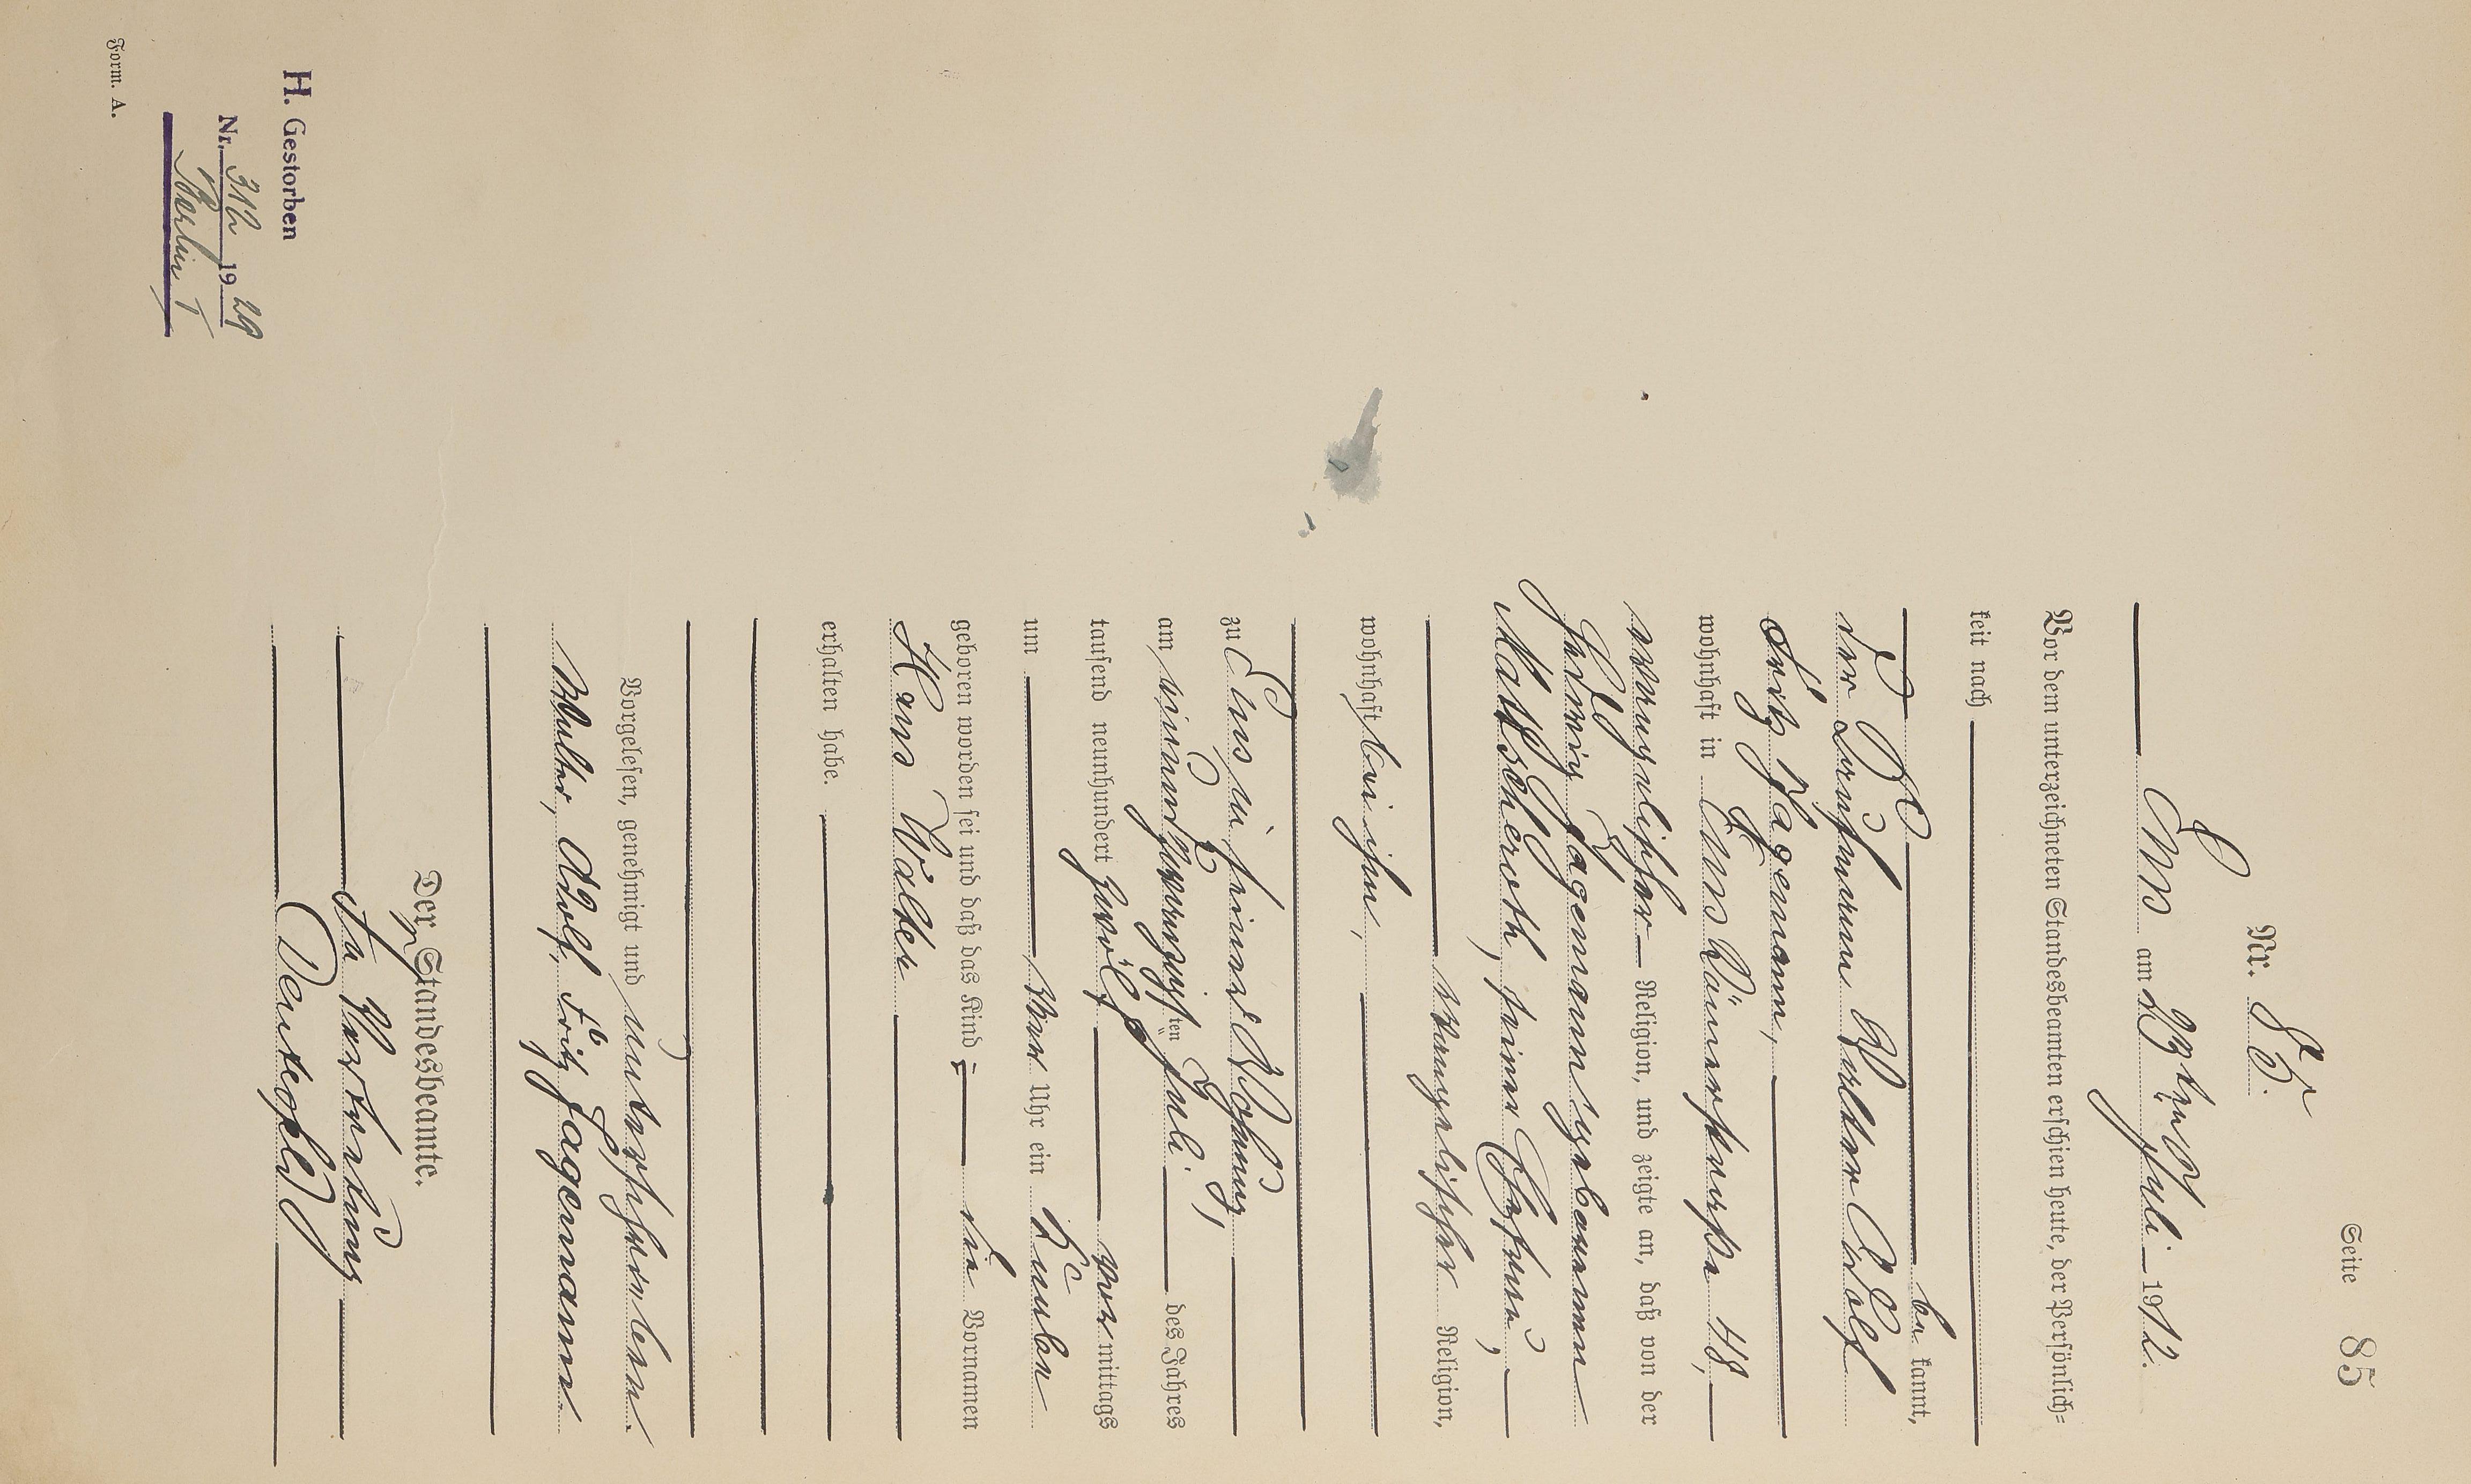 Seite 85
Nr. 85.
Ems am 23ten Juli 1912.
Vor dem unterzeichneten Standesbeamten erschien heute, der Persönlich=
keit nach
be kannt,
der Kaufmann Walter Adolf
Fritz Hagemann,
wohnhaft in Ems Römerstraße 48,
evangelischer Religion, und zeigte an, daß von der
Hagemann geborenen
Madscheroth, seiner Ehefrau,
evangelischer Religion,
wohnhaft bei ihm,
zu Ems in seiner Wohnung,
am einundzwanzigsten Juli des Jahres
tausend neunhundert zwölf vor mittags
um Uhr ein Knabe
geboren worden sei und daß das Kind die Vornamen
Hans Walter
erhalten habe.
Vorgelesen, genehmigt und unterschrieben.
Walter, Adolf, Fritz Hagemann.
Der Standesbeamte.
In Vertretung
H. Gestorben
Nr. 312 1929
Berlin I
Form. A.